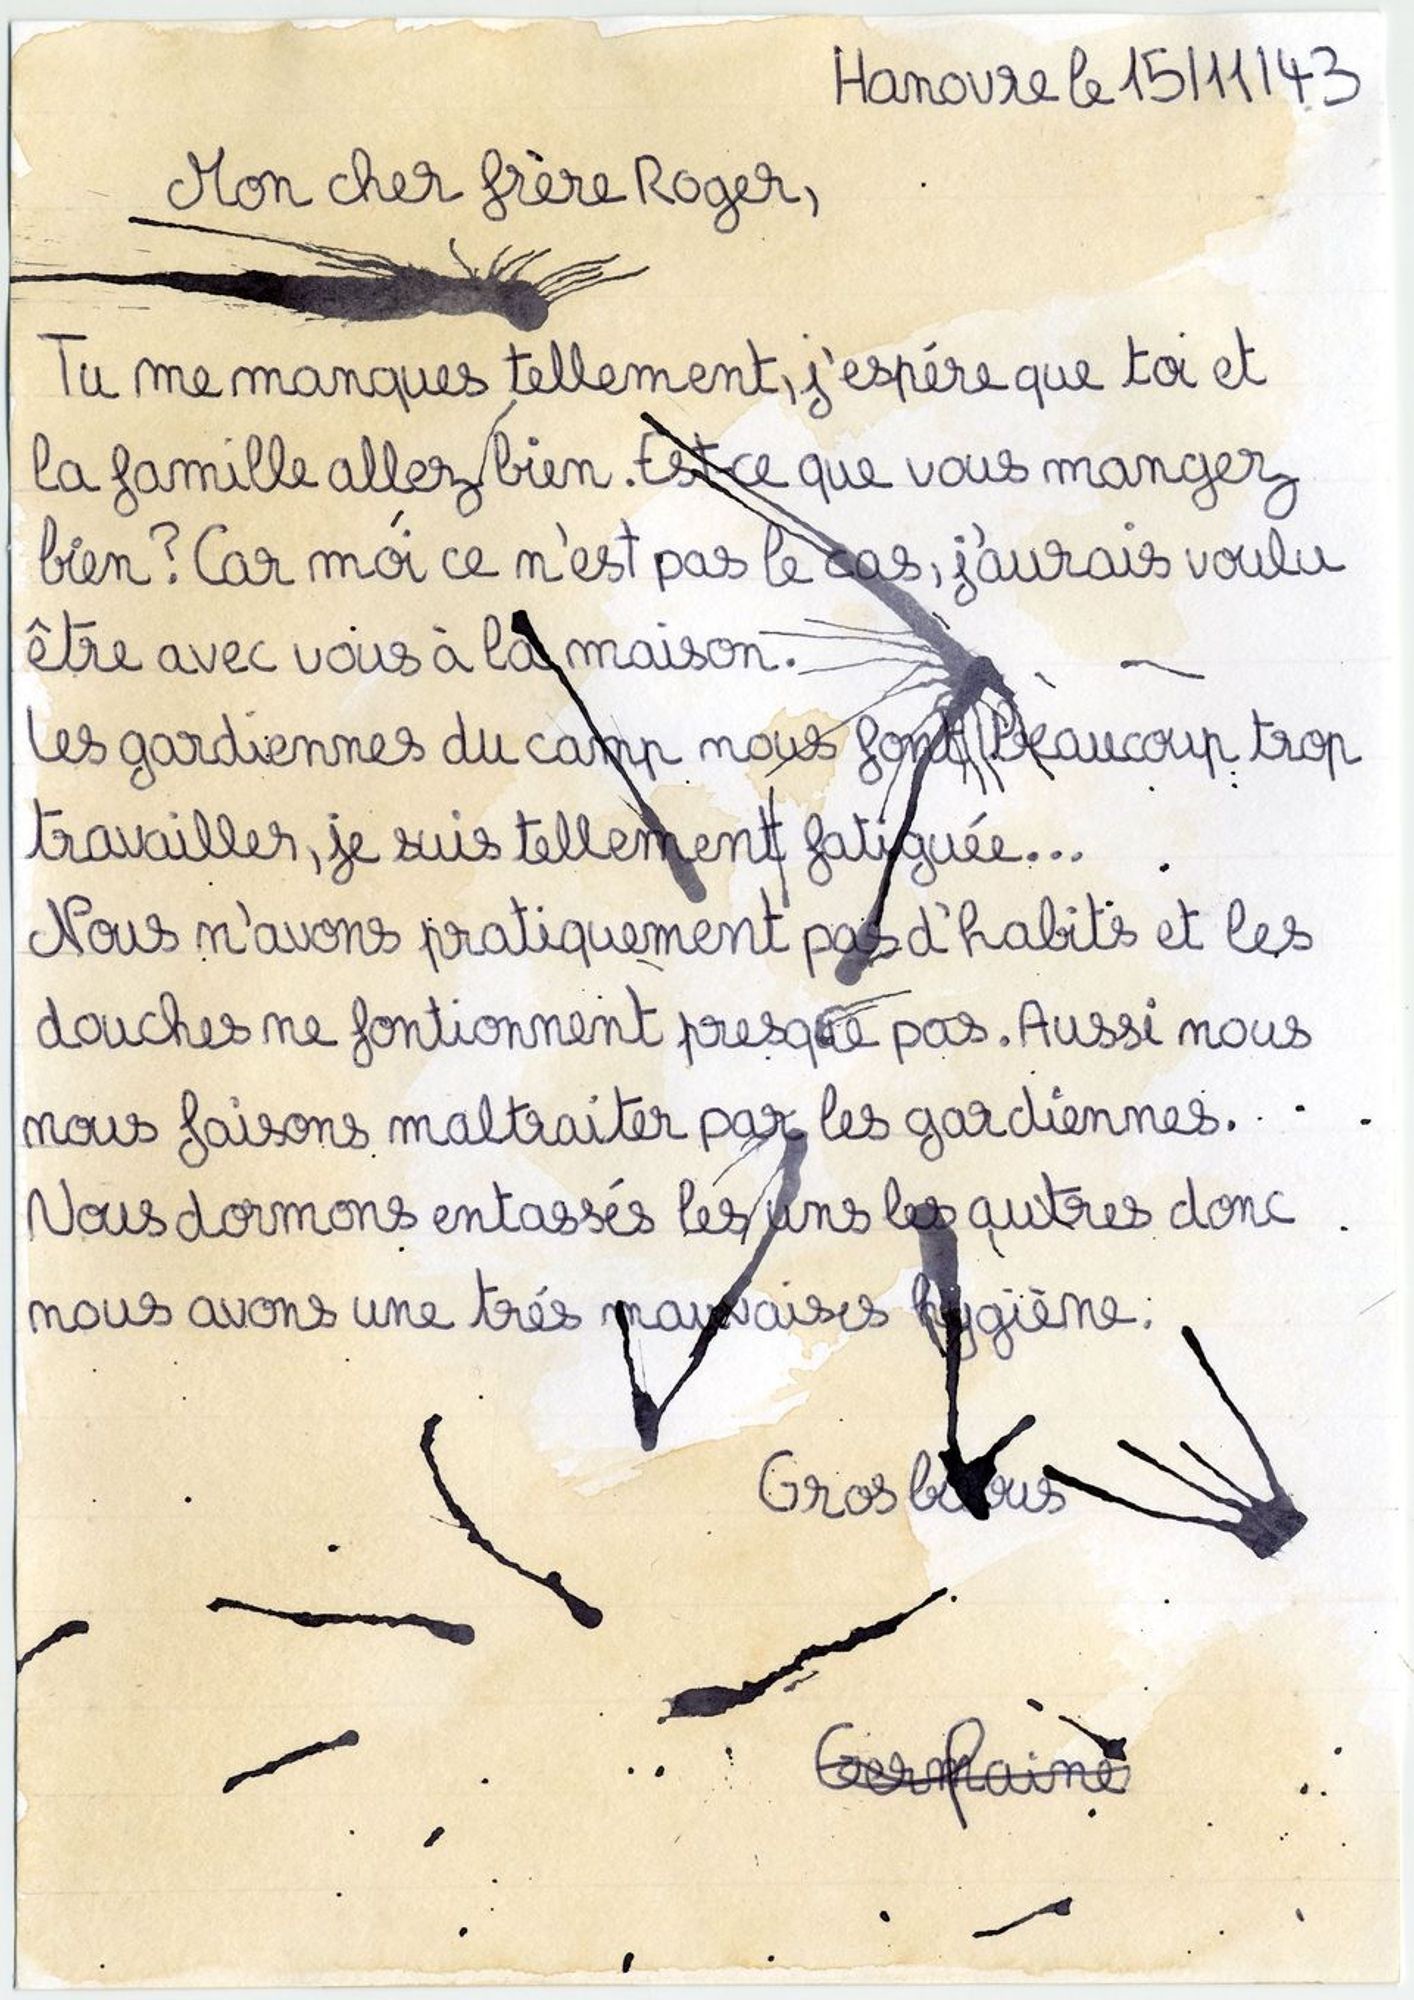 Hanovre le 15/11/43
Mon cher frère Roger,
Tu me manques tellement, j'espére que toi et
la famille allez bien. Est ce que vous mangez
bien? Car moi ce n'est pas le cas, j'aurais voulu
être avec vous à la maison.
Les gardiennes du camp nous font beaucoup trop
travailler, je suis tellement fatiguée...
Nous n'avons pratiquement pas d'habits et les
douches ne fontionnent presque pas. Aussi nous
nous faisons maltraiter par les gardiennes.
Nous dormons entassés les uns les autres donc
nous avons une trés mauvaises hygiène.
Gros bisous
Germaine